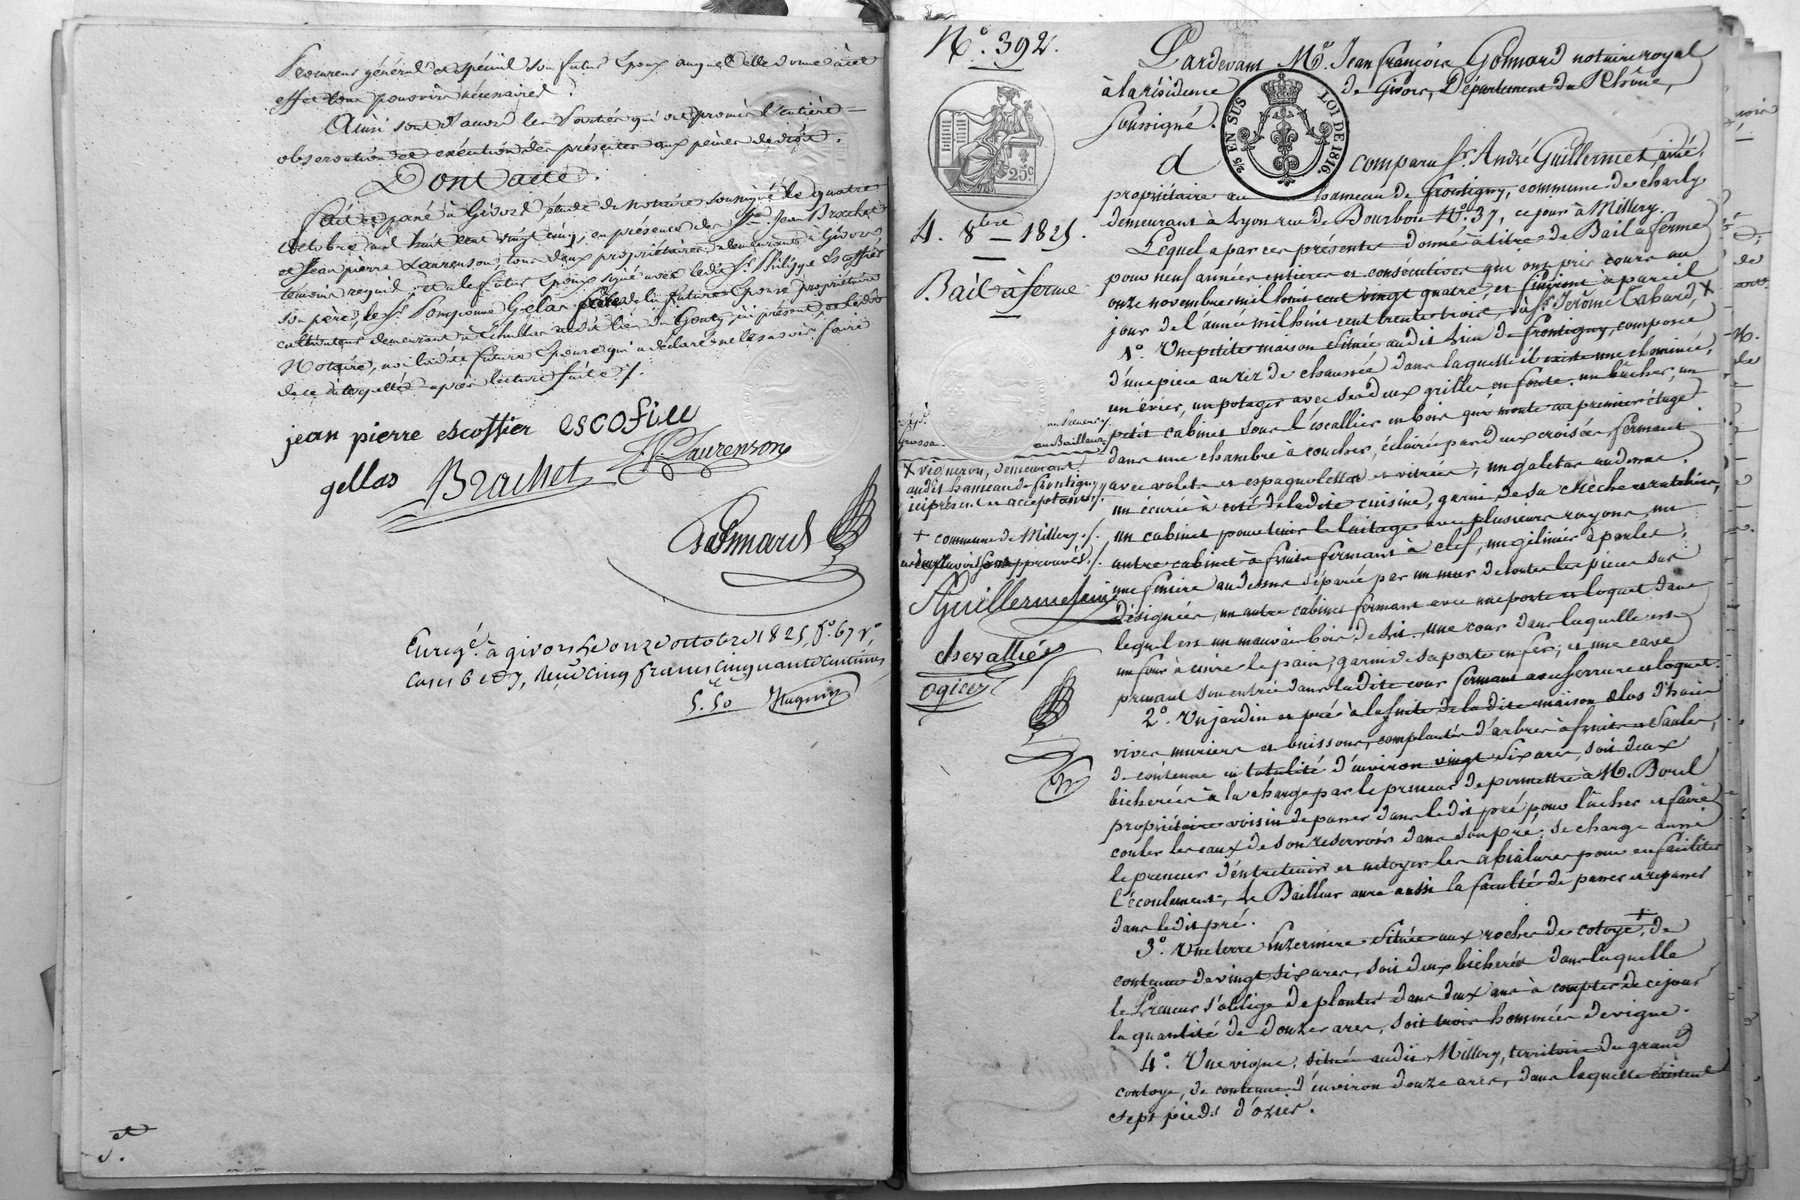 procureur général et spécial son futur époux auquel elle donne à cet
effet tous pouvoirs nécessaires.
Ainsi sont d'accord les parties qui ont promis l'entière
observation et exécution des présentes aux peines de droit.
Dont acte.
Fait et passé à Givors, étude du notaire soussigné le quatre
octobre mil huit cent vingt cinq, en présence des Srs Jean Brachet
et Jean pierre Laurenson, tous deux propriétaires demeurants à Givors
témoins requis; et le futur époux signé avec ledit Sr Philippe Escoffier
son père, le Sr Pomponne Gélas père de la future épouse propriétaire
cultivateur demeurant à Echallas audit lieu du ici présent, et ledit
Notaire, non ladite future épouse qui a déclaré ne les savoir faire
de ce interpellés après lecture faite /.
jean pierre escoffier escofier
gellas Brachet J. P. Laurenson
Gonnard
Enregé à givors le onze octobre 1825, fo. 67 vo,
cases 6 et 7, reçu cinq francs cinquante centimes
5. 50 Hugnin
No. 392.
Pardevant Me. Jean françois Gonnard notaire royal
à la résidence de Givors, Département du Rhône,
soussigné.
2/5 EN SUS LOI DE 1816.
25c
a comparu Sr. André Guillermet aîné,
propriétaire au hameau de frontigny, commune de charly
demeurant à Lyon rue de Bourbon No. 37, ce jour à Millery.
4. 8bre 1825.
Lequel a par ces présentes donné à titre de Bail à ferme
pour neuf années entières et consécutives qui ont pris cours au
Bail à ferme
onze novembre mil huit cent vingt quatre, et finiront à pareil
jour de l'année mil huit cent trente trois, à Sr. Jerôme Cabard, X
1o. Une petite maison située audit lieu de frontigny, composée
d'une pièce au rez de chaussée dans laquelle il existe une cheminée,
un évier, un potager avec ses deux grilles en fonte, un bûcher, un
petit cabinet sous l'escallier en bois qui monte au premier étage
dans une chambre à coucher, éclairée par deux croisées fermant
avec volets et espagnolettes et vitrées, un galetas au dessus.
un écurie à coté de ladite cuisine, garnie de sa crèche et ratelier,
un cabinet pour tenir le laitage avec plusieurs rayons, un
autre cabinet à fruits fermant à clef, un gélinier à poules,
une fenière au dessus séparée par un mur de toutes les pièces sus
désignées, un autre cabinet fermant avec une porte et loquet dans
lequel est un mauvais bois de lit, une cour dans laquelle est
un four à cuire le pain, garni de sa porte en fer; et une cave
prenant son entrée dans ladite cour fermant avec serrure et loquet.
X vigneron, demeurant
audit hameau de frontigny
ici présent et acceptant /.
+ commune de Millery. /.
approuvés. /.
AGuillermet aîné
chevallier
ogier
2o. Un jardin et pré à la suite de la dite maison clos d'haie
vives muriers et buissons, complantés d'arbres à fruits et saules,
de contenue en totalité d'environ vingt six ares, soit deux
bicherées à la charge par le preneur de permettre à M. Borel
propriétaire voisin de passer dans ledit pré, pour lâcher et faire
couler les eaux de son reservoir dans son pré; se charge aussi
le preneur d'entretenir et netoyer les apialures pour en faciliter
l'écoulement, le Bailleur aura aussi la faculté de passer et repasser
dans le dit pré.
3o. Une terre luzernière située aux roches de cotoye +, de
contenue de vingt six ares, soit deux bicherées dans laquelle
le Preneur s'oblige de planter dans deux ans à compter de ce jour
la quantité de douze ares, soit trois hommées de vigne.
4o. Une vigne, située audit Millery, territoire du grand
cotoye, de contenue d'environ douze ares, dans laquelle existent
sept pieds d'ozier.